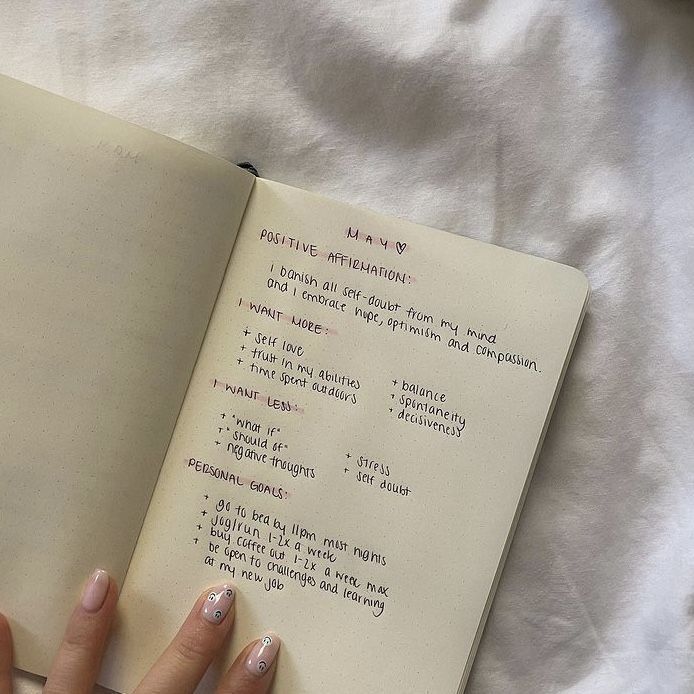 MAY ♡
POSITIVE AFFIRMATION:
I banish all self-doubt from my mind
and I embrace hope, optimism and compassion.
I WANT MORE:
+ self love
+ trust in my abilities
+ time spent outdoors
+ balance
+ spontaneity
+ decisiveness
I WANT LESS:
+ "what if"
+ "should of"
+ negative thoughts
+ stress
+ self doubt
PERSONAL GOALS:
+ go to bed by 11pm most nights
+ jog/run 1-2x a week
+ buy coffee out 1-2x a week max
+ be open to challenges and learning
at my new job